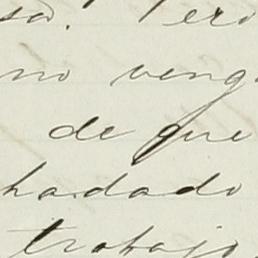 sa. Pero
no veng
de que
ha dado
trabajo